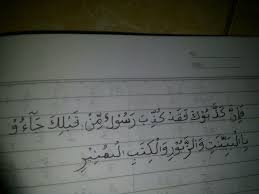 فَإِنْ كَذَّبُوكَ فَقَدْ كُذِّبَ رَسُولٌ مِّنْ قَبْلِكَ جَآءُوْ
بِالْبَيِّنٰتِ وَالزَّبُوْرِ وَالْكِتٰبِ الْمُنِيْرِ